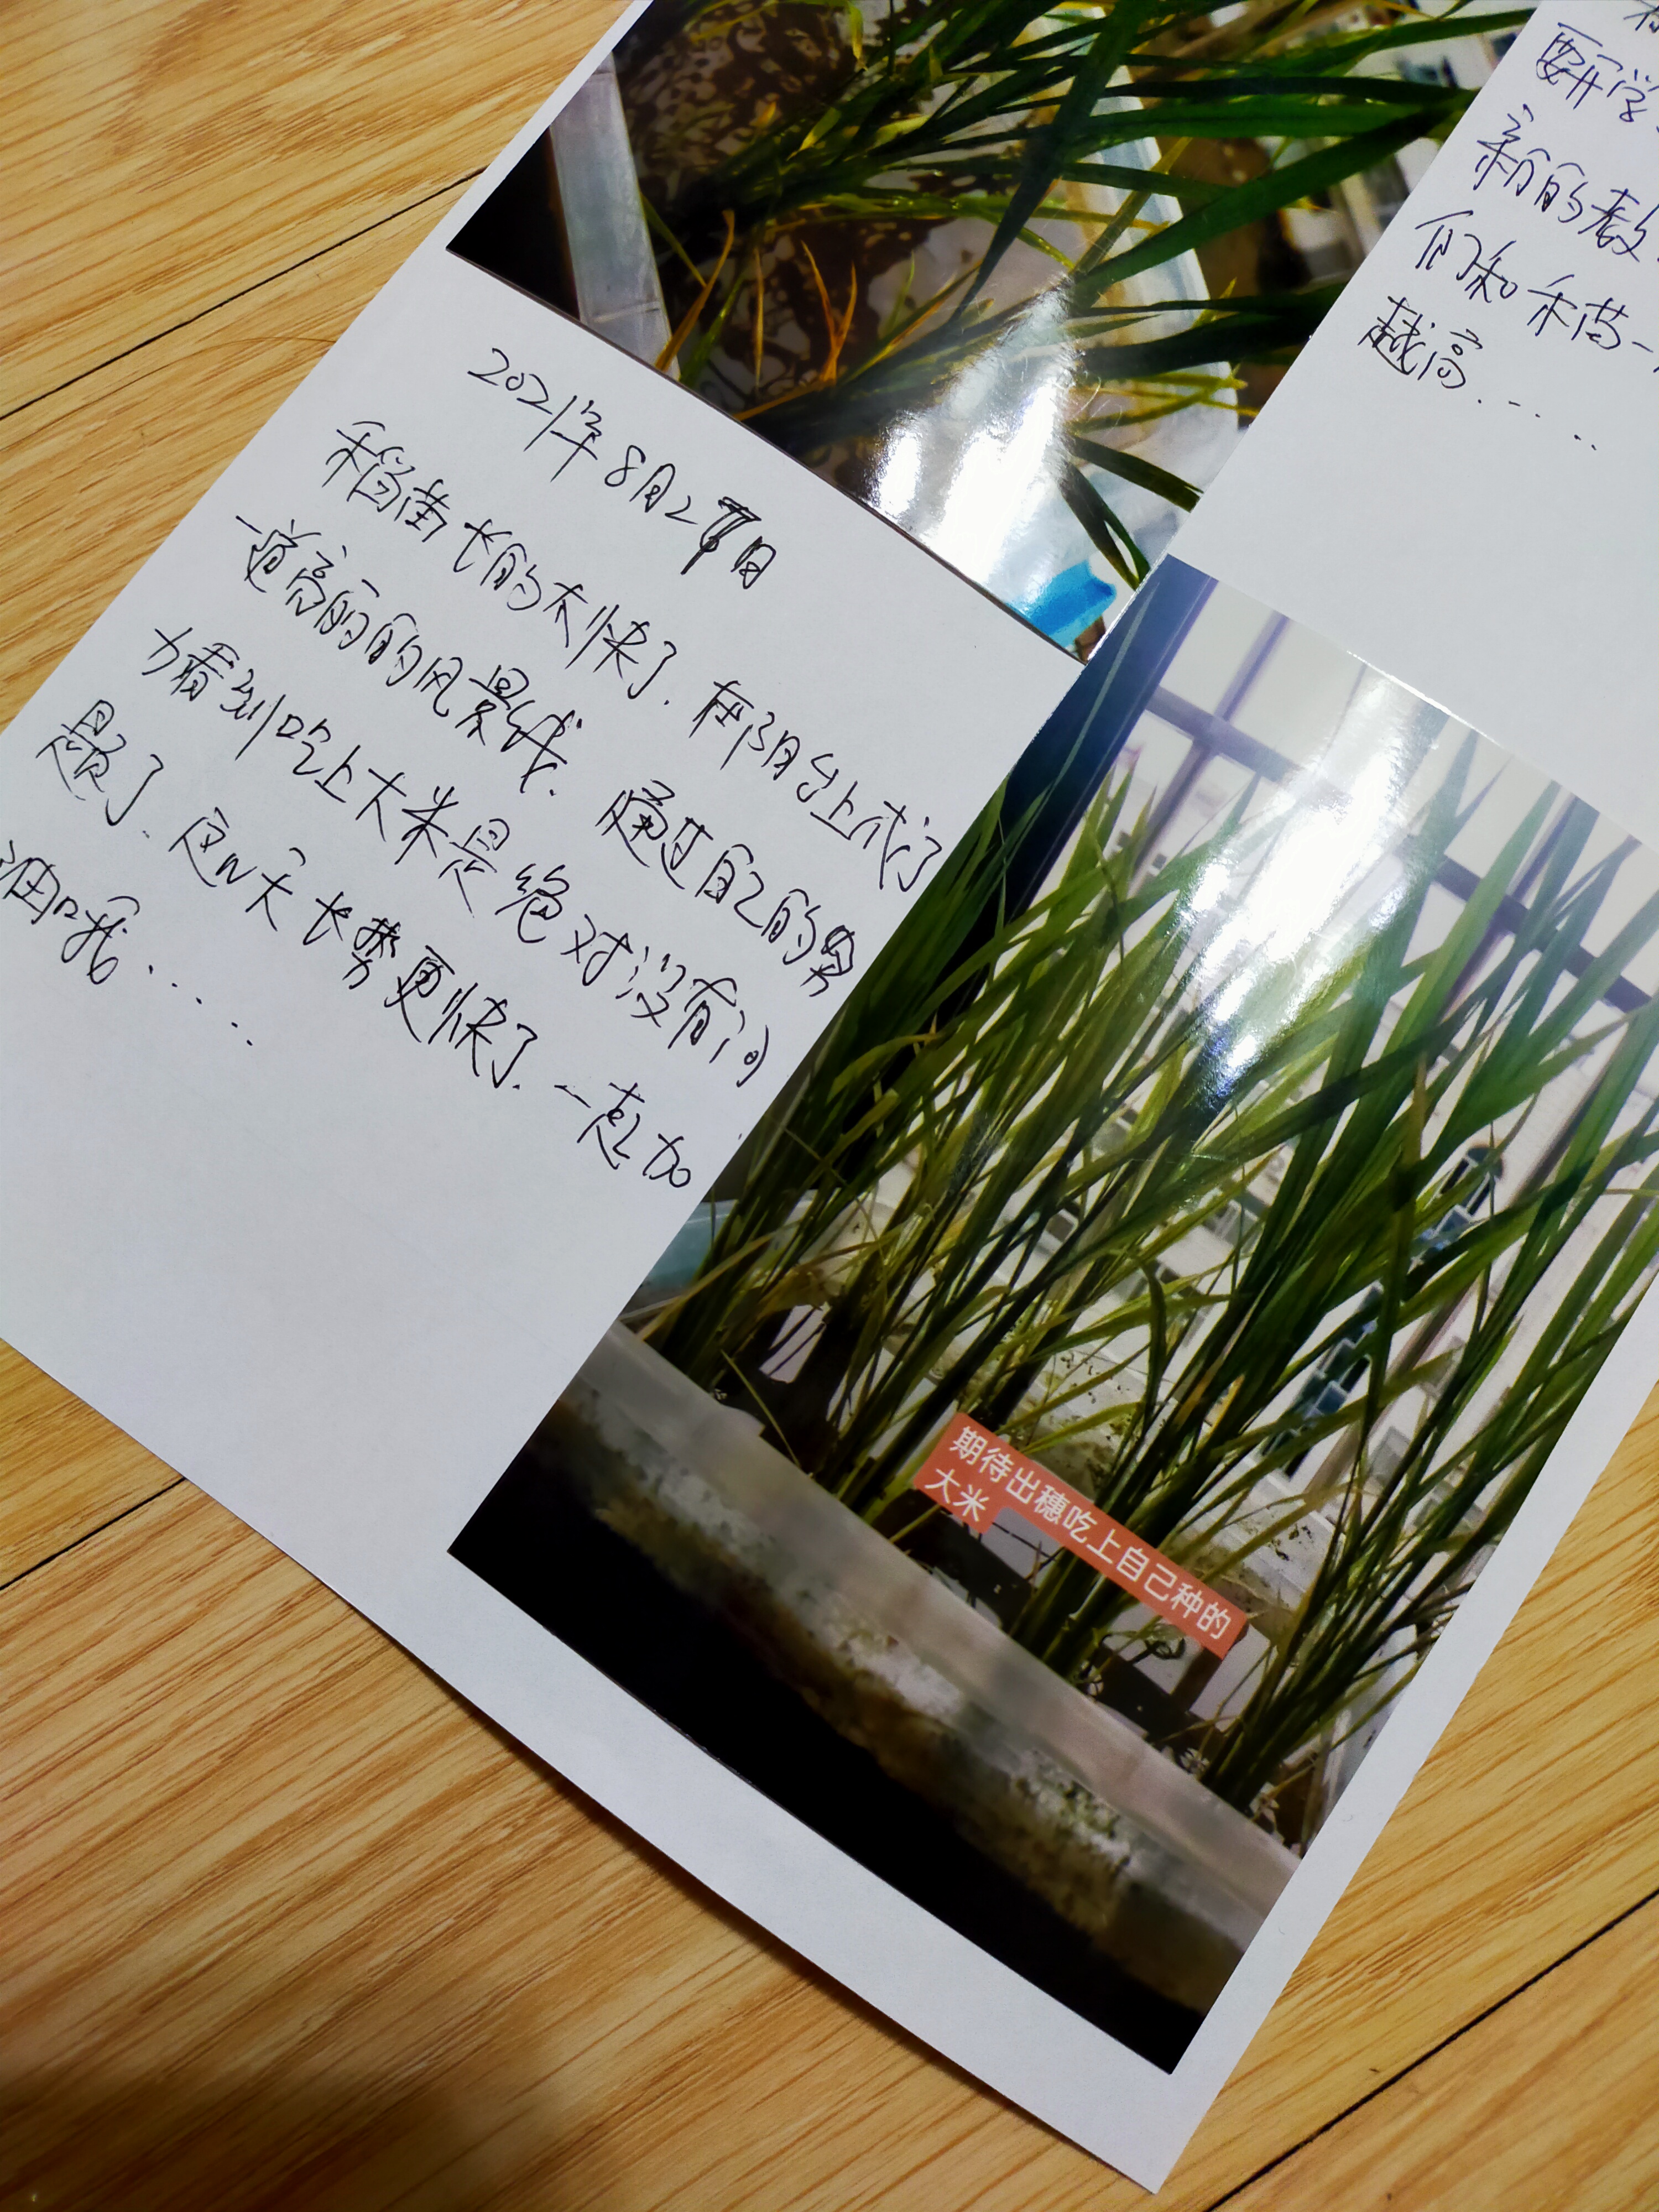 要开学
新的教
们和禾苗一
越高.....
2021年8月27日
稻苗长的太快了.在阳台上成了
一道亮丽的风景线.通过自己的努
力看到吃上大米是绝对没有问
题了.这几天长势更快了.一起加
油哦.....
期待出穗吃上自己种的
大米